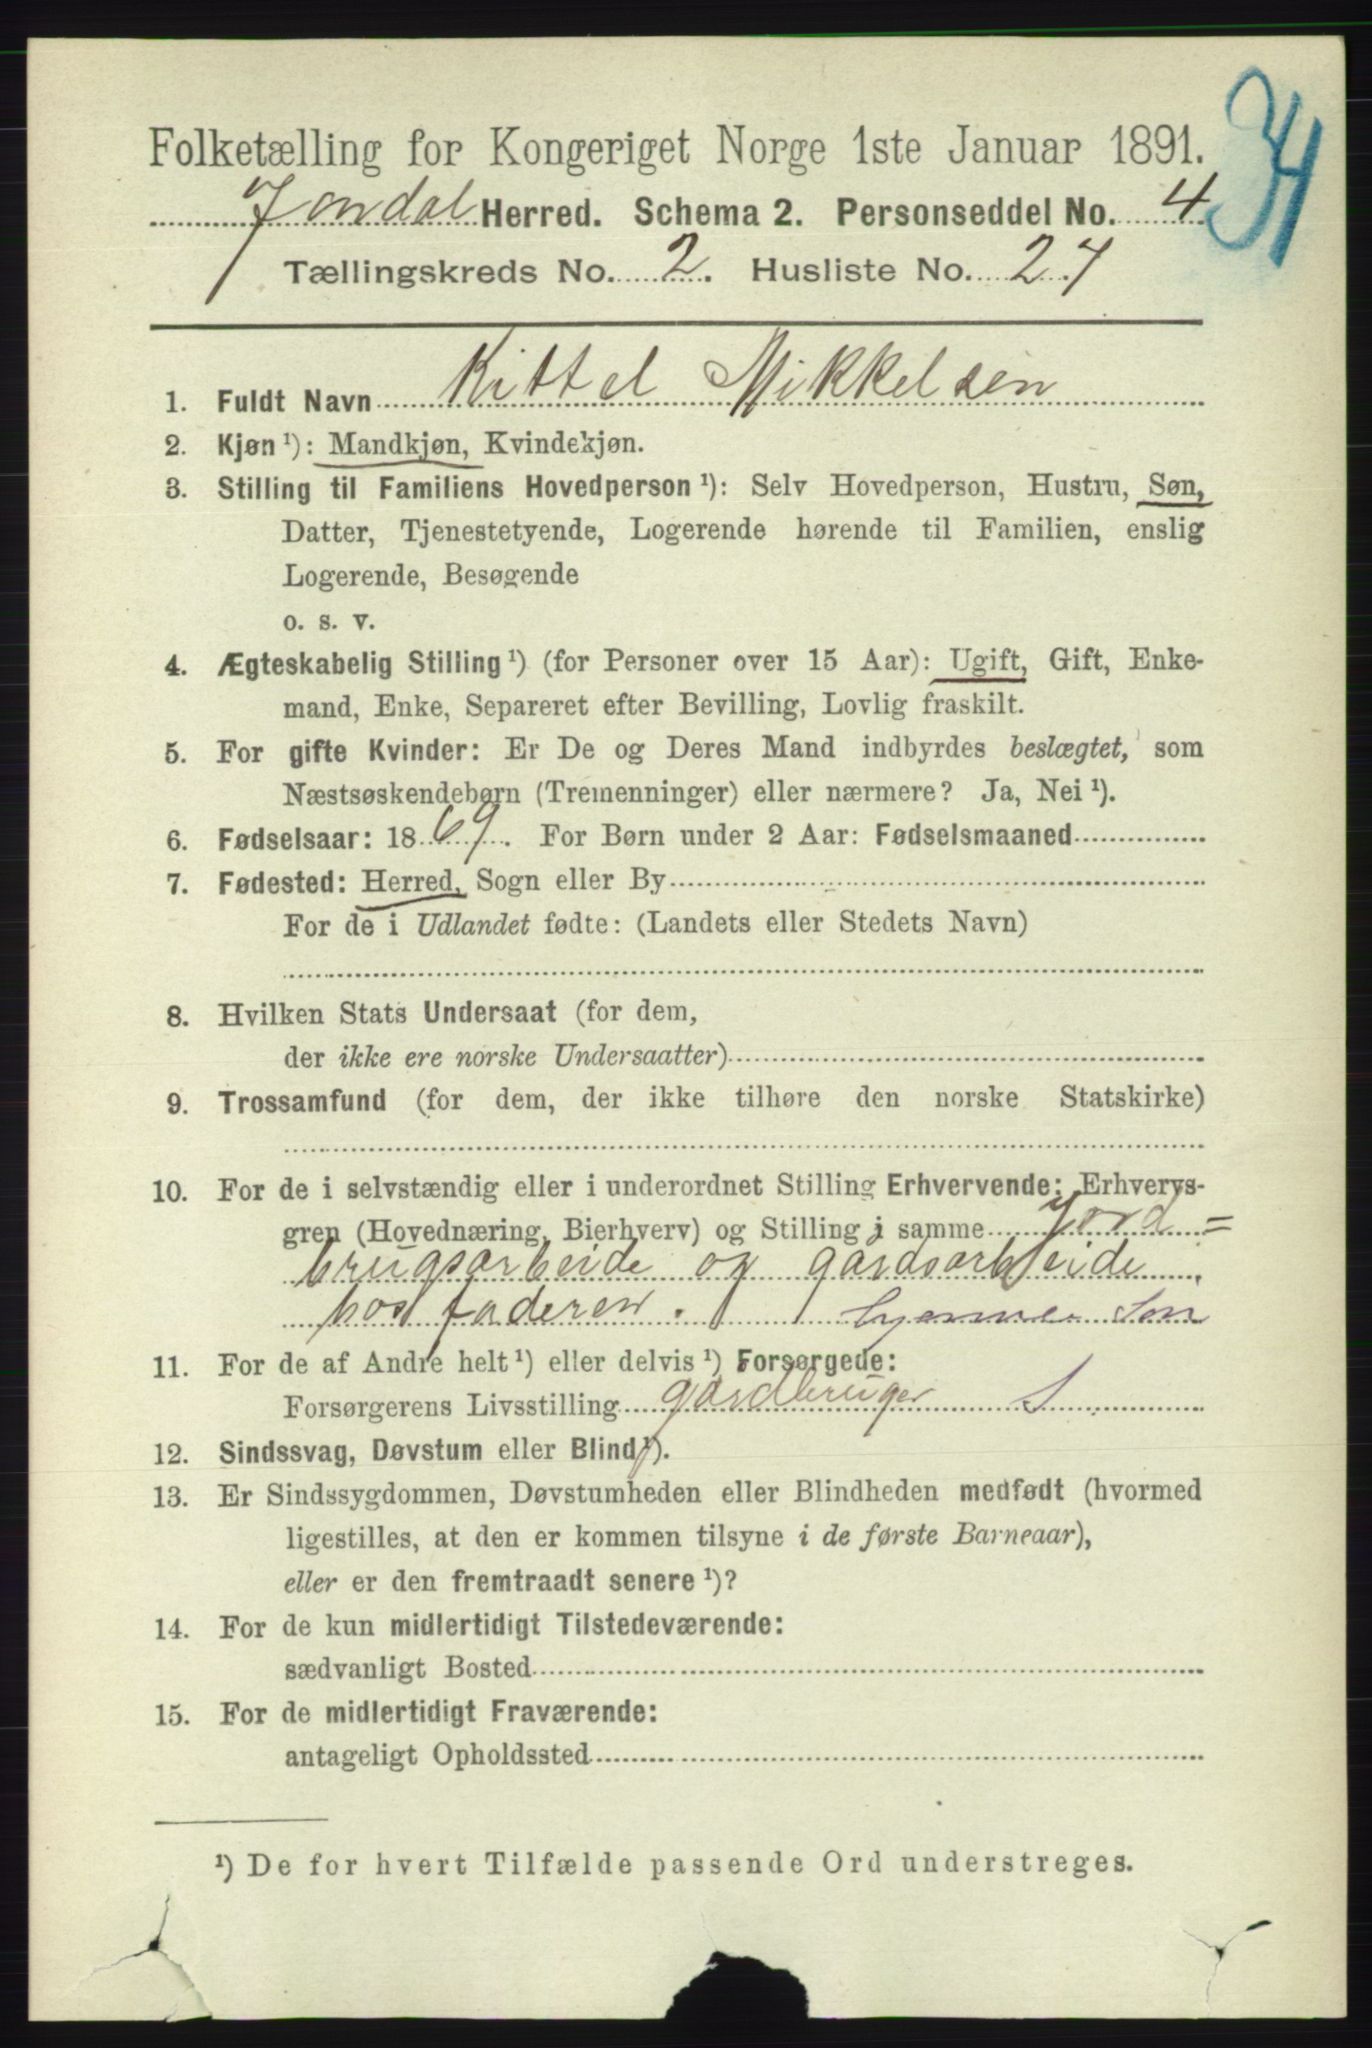 34
Folketælling for Kongeriget Norge 1ste Januar 1891.
Jondal Herred. Schema 2. Personseddel No. 4
Tællingskreds No. 2. Husliste No. 27
1. Fuldt Navn Kittel Mikkelsen
2. Kjøn ¹): Mandkjøn, Kvindekjøn.
3. Stilling til Familiens Hovedperson ¹): Selv Hovedperson, Hustru, Søn,
Datter, Tjenestetyende, Logerende hørende til Familien, enslig
Logerende, Besøgende
o. s. v.
4. Ægteskabelig Stilling ¹) (for Personer over 15 Aar): Ugift, Gift, Enke-
mand, Enke, Separeret efter Bevilling, Lovlig fraskilt.
5. For gifte Kvinder: Er De og Deres Mand indbyrdes beslægtet, som
Næstsøskendebørn (Tremenninger) eller nærmere? Ja, Nei ¹).
6. Fødselsaar: 1869. For Børn under 2 Aar: Fødselsmaaned
7. Fødested: Herred, Sogn eller By
For de i Udlandet fødte: (Landets eller Stedets Navn)
8. Hvilken Stats Undersaat (for dem,
der ikke ere norske Undersaatter)
9. Trossamfund (for dem, der ikke tilhøre den norske Statskirke)
10. For de i selvstændig eller i underordnet Stilling Erhvervende: Erhvervs-
gren (Hovednæring, Bierhverv) og Stilling i samme Jord=
brugsarbeide og gårdsarbeide
hos faderen. hjemmev. Søn
11. For de af Andre helt ¹) eller delvis ¹) Forsørgede:
Forsørgerens Livsstilling gårdbruger S
12. Sindssvag, Døvstum eller Blind ¹).
13. Er Sindssygdommen, Døvstumheden eller Blindheden medfødt (hvormed
ligestilles, at den er kommen tilsyne i de første Barneaar),
eller er den fremtraadt senere ¹)?
14. For de kun midlertidigt Tilstedeværende:
sædvanligt Bosted
15. For de midlertidigt Fraværende:
antageligt Opholdssted
¹) De for hvert Tilfælde passende Ord understreges.